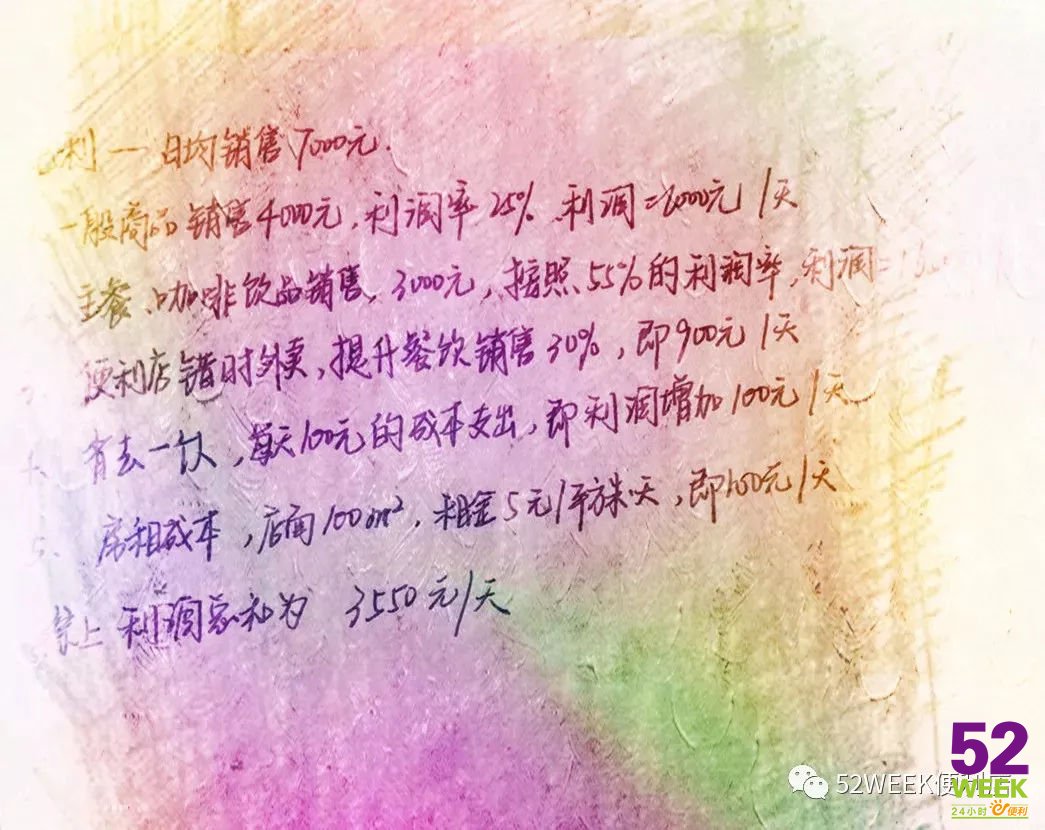 利一 日均销售7000元.
一般商品销售4000元,利润率25% 利润=1000元/天
主餐、咖啡饮品销售,3000元,按照55%的利润率,利润=
便利店错时外卖,提升餐饮销售30%,即900元/天
省去一人,每天100元的成本支出,即利润增加100元/天
5、房租成本,店面100m²,租金5元/平方米/天,即500元/天
综上利润总和为 3550元/天
52WEEK便利
52
WEEK
24小时 e便利